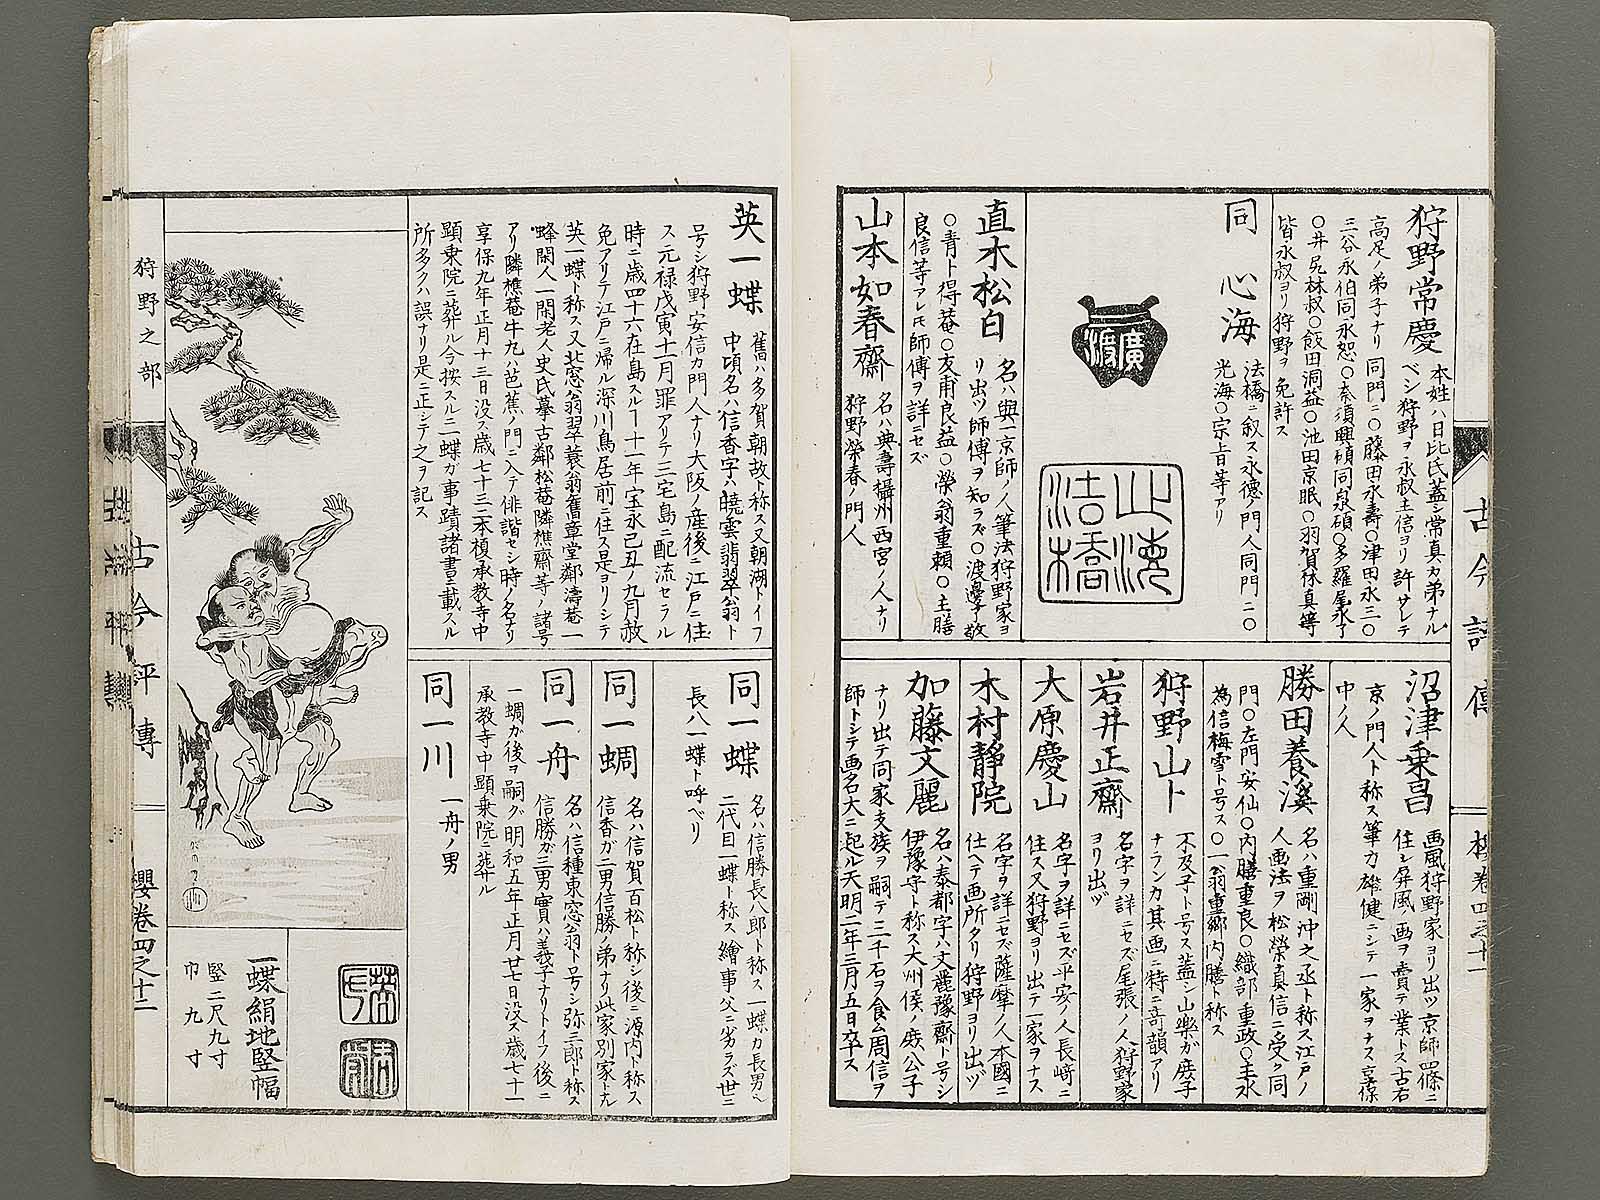 狩野常慶
本姓ハ日比氏蓋シ常真カ弟ナル
ベシ狩野ヲ永叔主信ヨリ許サレテ
高足ノ弟子ナリ同門ニ○藤田永壽○津田永三○
三谷永伯同永恕○奈須興碩同泉碩○多羅尾永了
○井尻林叔○飯田洞益○池田京眠○羽賀休真等
皆永叔ヨリ狩野ヲ免許ス
同心海
法橋ニ叙ス永徳ノ門人同門ニ○
光海○宗旨等アリ
法橋
直木松白
名ハ與一京師ノ人筆法狩野家ヨ
リ出ツ師傳ヲ知ラズ○渡邊了敬
○青卜得菴○友甫良益○榮翁重頼○主膳
良信等アレ𪜈師傳ヲ詳ニセズ
山本如春齋
名ハ典壽攝州西宮ノ人ナリ
狩野榮春ノ門人
沼津乗昌
画風狩野家ヨリ出ツ京師四條ニ
住シ屏風ノ画ヲ賣テ業トス古右
京ノ門人ト称ス筆力雄健ニシテ一家ヲナス享保
中ノ人
勝田養溪
名ハ重剛沖之丞ト称ス江戸ノ
人画法ヲ松榮真信ニ受ク同
門○左門安仙○内膳重良○織部重政○主水
為信梅雪ト号ス○一翁重郷内膳ト称ス
狩野山卜
不及子ト号ス蓋シ山樂ガ庶子
ナランカ其画ニ特ニ奇韻アリ
岩井正齋
名字ヲ詳ニセズ尾張ノ人狩野家
ヨリ出ヅ
大原慶山
名字ヲ詳ニセズ平安ノ人長﨑ニ
住ス又狩野ヨリ出テ一家ヲナス
木村靜院
名字ヲ詳ニセズ薩摩ノ人本國ニ
仕ヘテ画所タリ狩野ヨリ出ヅ
加藤文麗
名ハ泰都字ハ文麗豫齋ト号シ
伊豫守ト称ス大州侯ノ庶公子
ナリ出テ同家支族ヲ嗣テ二千石ヲ食ム周信ヲ
師トシテ画名大ニ起ル天明二年三月五日卒ス
英一蝶
舊ハ多賀朝故ト称ス又朝湖トイフ
中頃名ハ信香字ハ曉雲翡翠翁ト
号シ狩野安信カ門人ナリ大阪ノ産後ニ江戸ニ住
ス元禄戊寅十二月罪アリテ三宅島ニ配流セラル
時ニ歳四十六在島スルヿ十一年宝永己丑ノ九月赦
免アリテ江戸ニ帰ル深川鳥居前ニ住ス是ヨリシテ
英一蝶ト称ス又北窓翁翠蓑翁舊章堂鄰濤菴一
蜂閑人一閒老人史氏摹古鄰松菴隣樵齋等ノ諸号
アリ隣樵菴牛丸ハ芭蕉ノ門ニ入テ俳諧セシ時ノ名ナリ
享保九年正月十三日没ス歳七十三二本榎承教寺中
顕乗院ニ葬ル今按スルニ一蝶ガ事蹟諸書ニ載スル
所多クハ誤ナリ是ニ正シテ之ヲ記ス
同一蝶
名ハ信勝長八郎ト称ス一蝶カ長男
二代目一蝶ト称ス繪事父ニ劣ラズ世ニ
長八一蝶ト呼ベリ
同一蜩
名ハ信賀百松ト称シ後ニ源内ト称ス
信香ガ二男信勝ノ弟ナリ此家別家ト
同一舟
名ハ信種東窓翁ト号シ弥三郎ト称ス
信勝ガ三男實ハ義子ナリトイフ後ニ
一蜩カ後ヲ嗣グ明和五年正月廿七日没ス歳七十一
承教寺中顕乗院ニ葬ル
同一川
一舟ノ男
一蝶絹地竪幅
竪二尺九寸
巾九寸
狩野之部
古今評傳
櫻卷四之十二